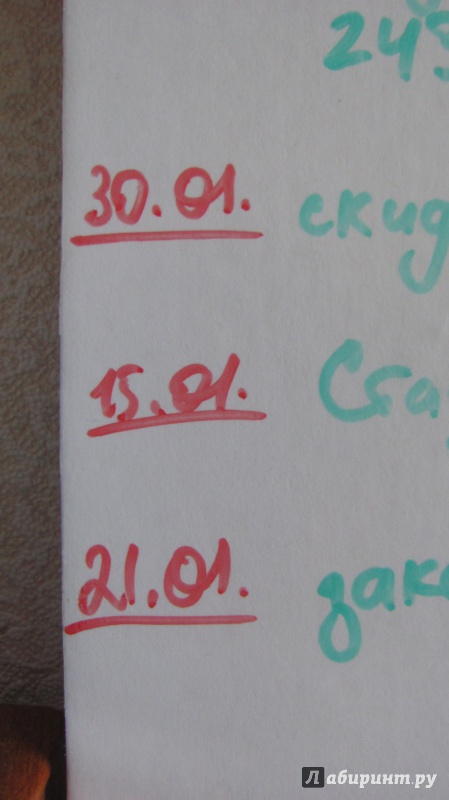 245
30.01. скид
15.01. Ста
21.01. зак
Лабиринт.ру